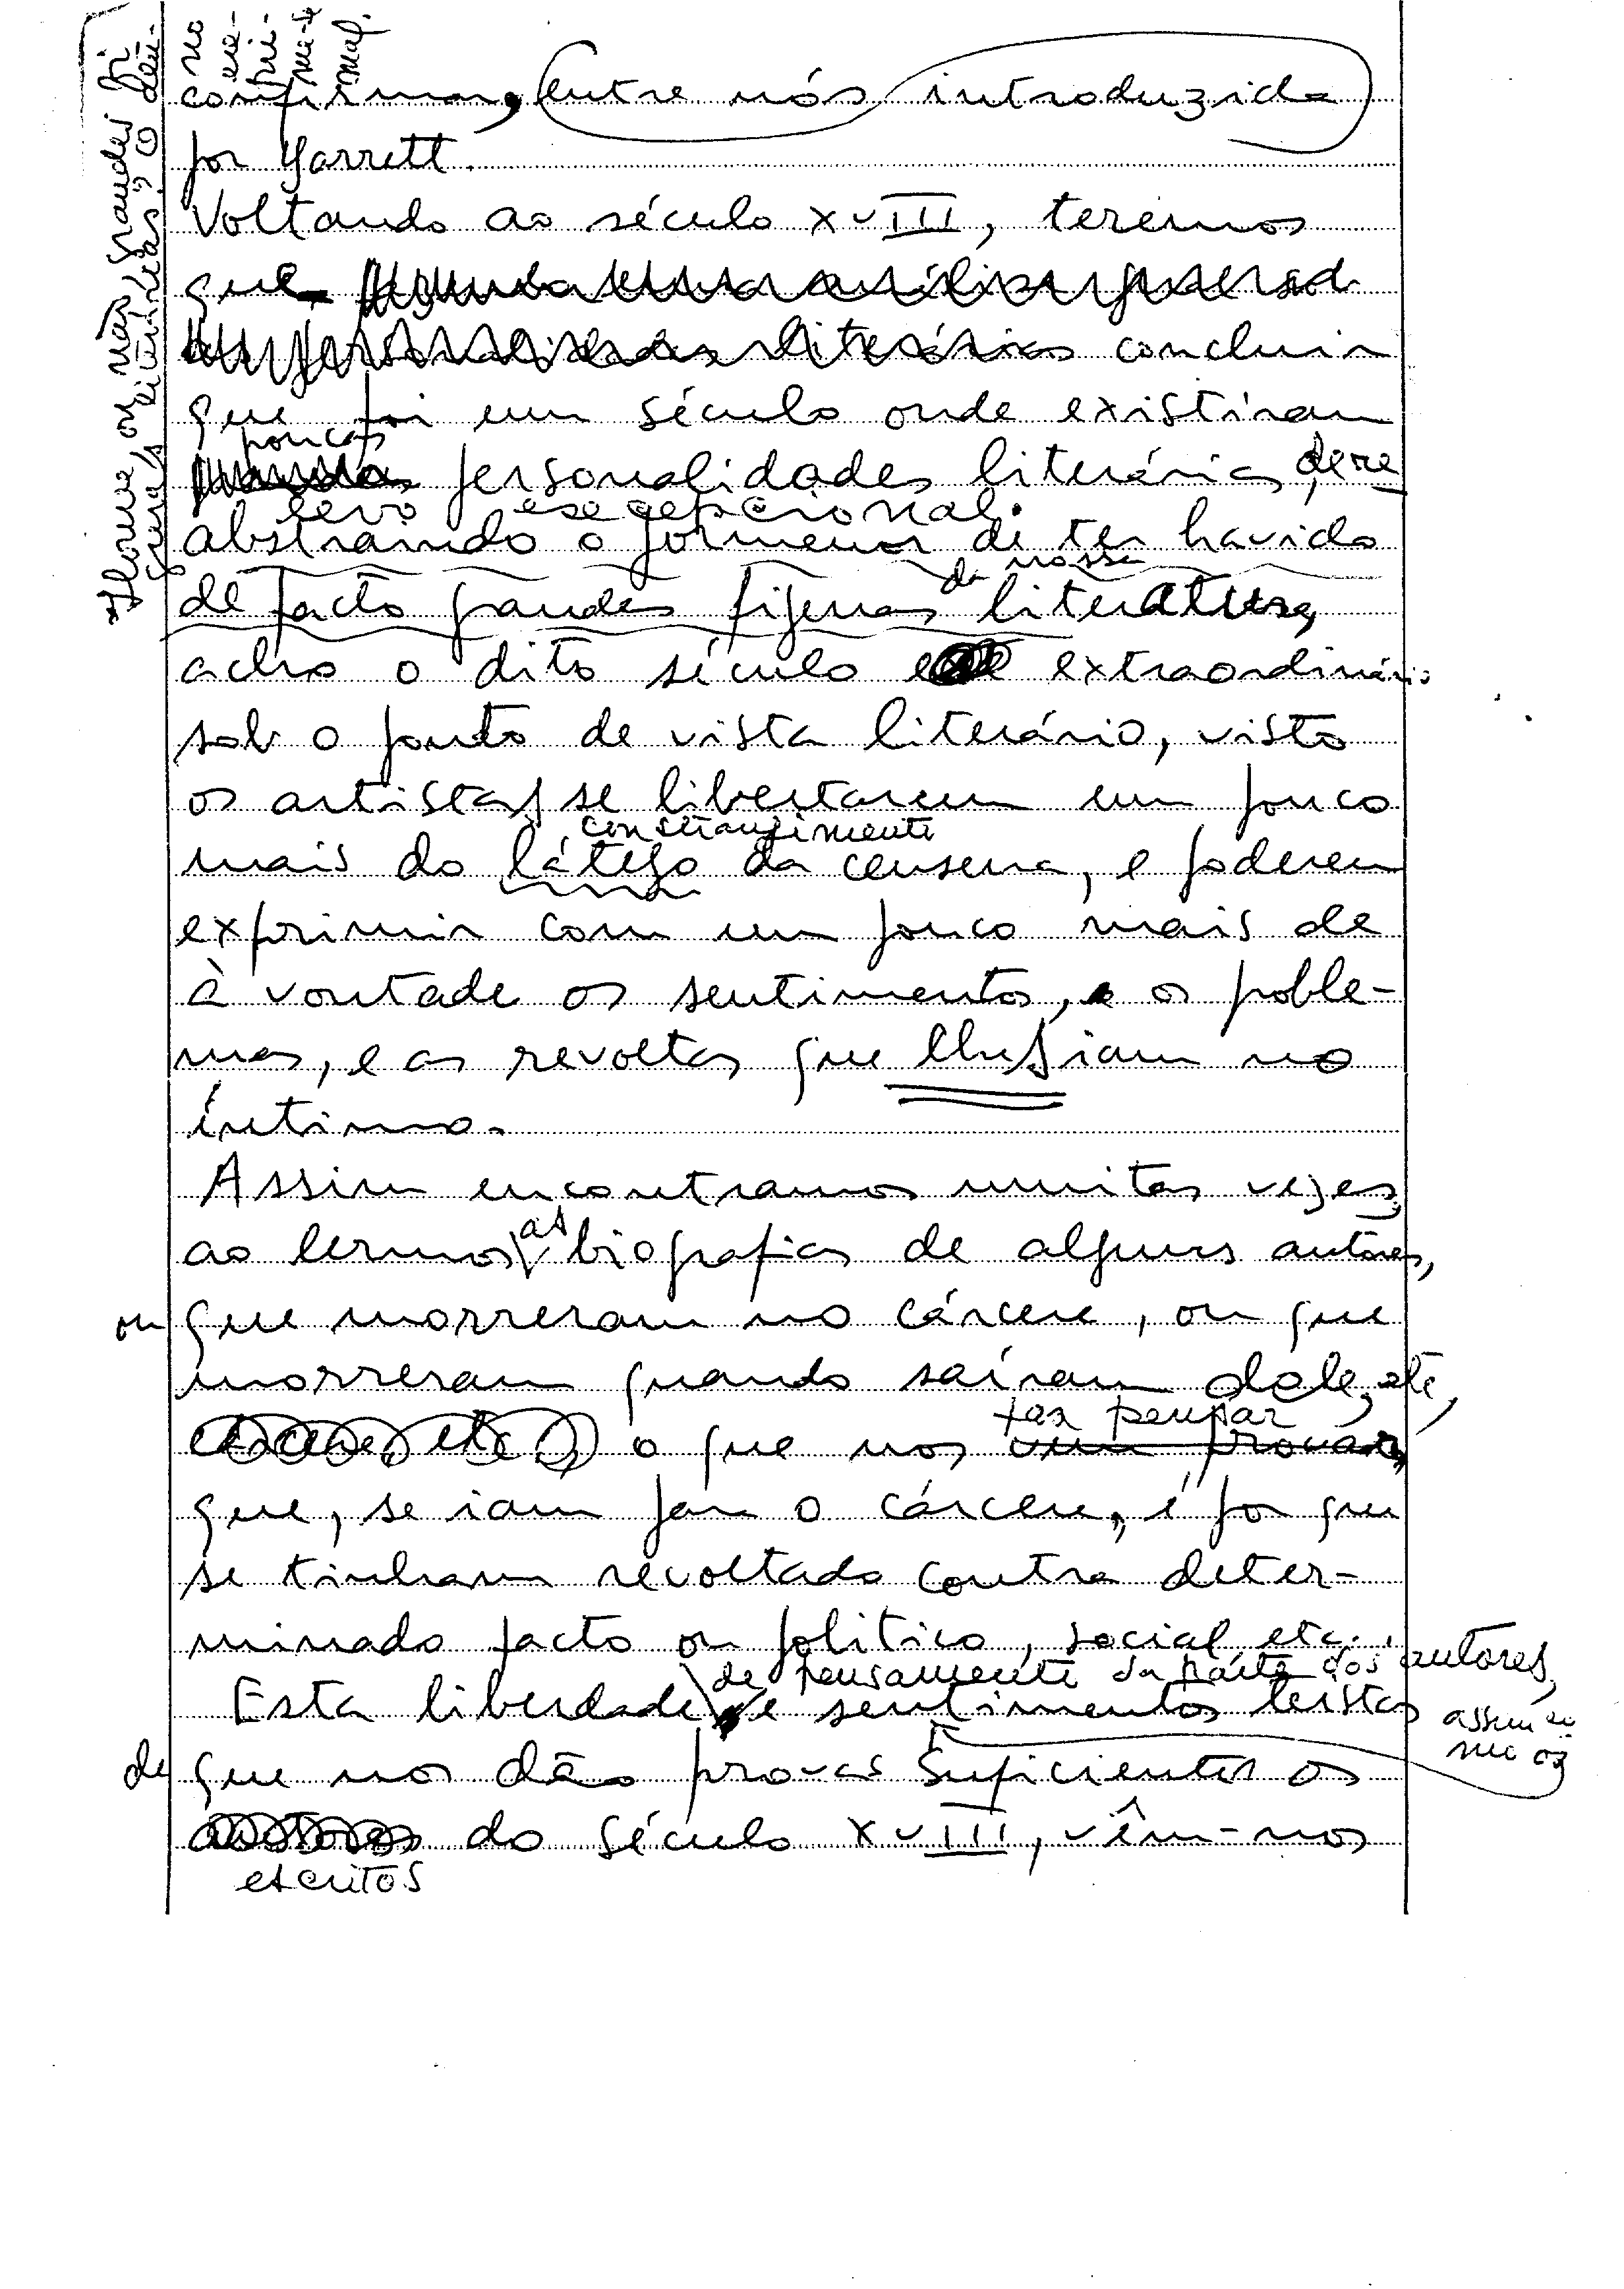 confirmar, entre nós introduzida
por Garrett.
Voltando ao século XVIII, teremos
que
concluir
que foi um século onde existiram
poucas
personalidades literárias, de re
levo esegepcional.
abstraindo o pormenor de ter havido
da nossa
de facto grandes figuras literatura,
acho o dito século extraordinário
sob o ponto de vista literário, visto
os artistas se libertarem um pouco
constrangimento
mais do látego da censura, e poderem
exprimir com um pouco mais de
à vontade os sentimentos, e os proble-
mas, e as revoltas que lhes iam no
íntimo.
Assim encontramos muitas vezes,
as
ao lermos biografias de alguns autores,
ou que morreram no cárcere, ou que
morreram quando saíram dele, etc,
faz pensar
o que nos vem provar,
que, se iam para o cárcere, é por que
se tinham revoltado contra deter-
minado facto ou político, social etc.
de pensamento da parte dos autores,
Esta liberdade e sentimentos
assim co
mo os
de que nos dão provas suficientes os
autores do século XVIII, vêm-nos
escritos